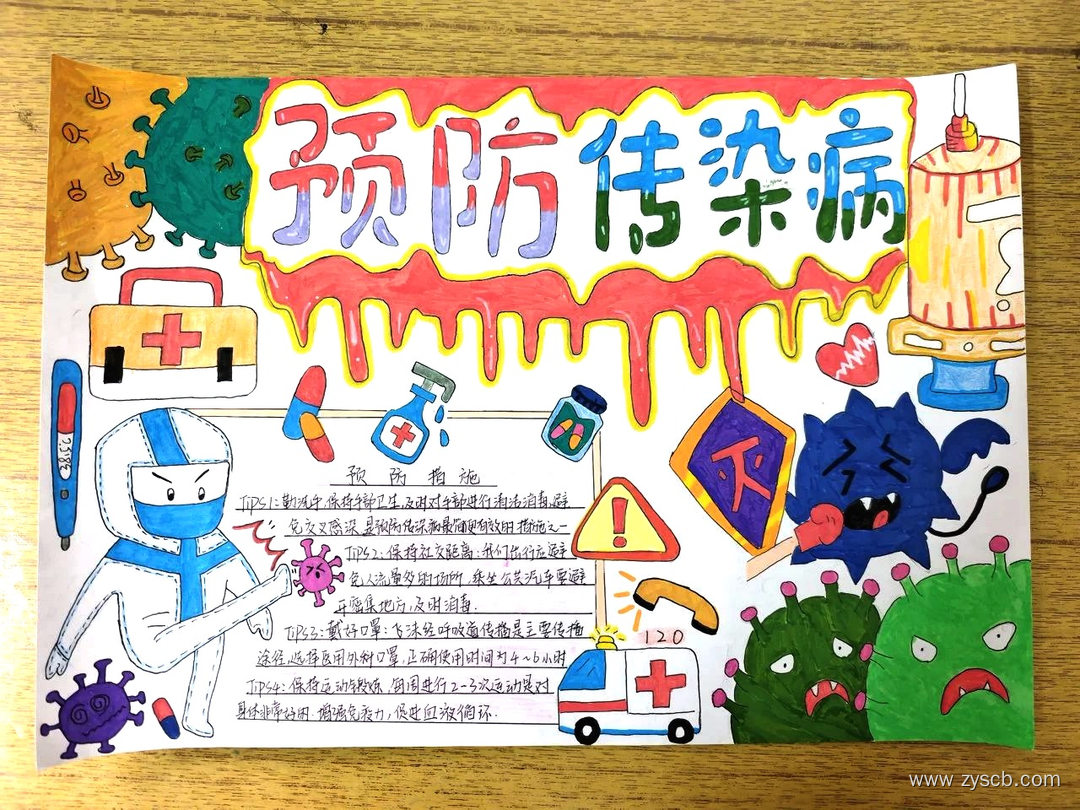 预防传染病
灭
预防措施
TIPS1:勤洗手,保持手部卫生,及时对手部进行清洁消毒,避
免交叉感染,是预防传染病最简便有效的措施之一
TIPS2:保持社交距离:我们出行应避
免人流量多的场所,乘坐公共汽车要避
开密集地方,及时消毒.
TIPS3:戴好口罩:飞沫经呼吸道传播是主要传播
途径,选择医用外科口罩,正确使用时间为4~6小时
120
TIPS4:保持运动锻炼,每周进行2-3次运动是对
身体非常好的,增强免疫力,促进血液循环.
www.zyscb.com